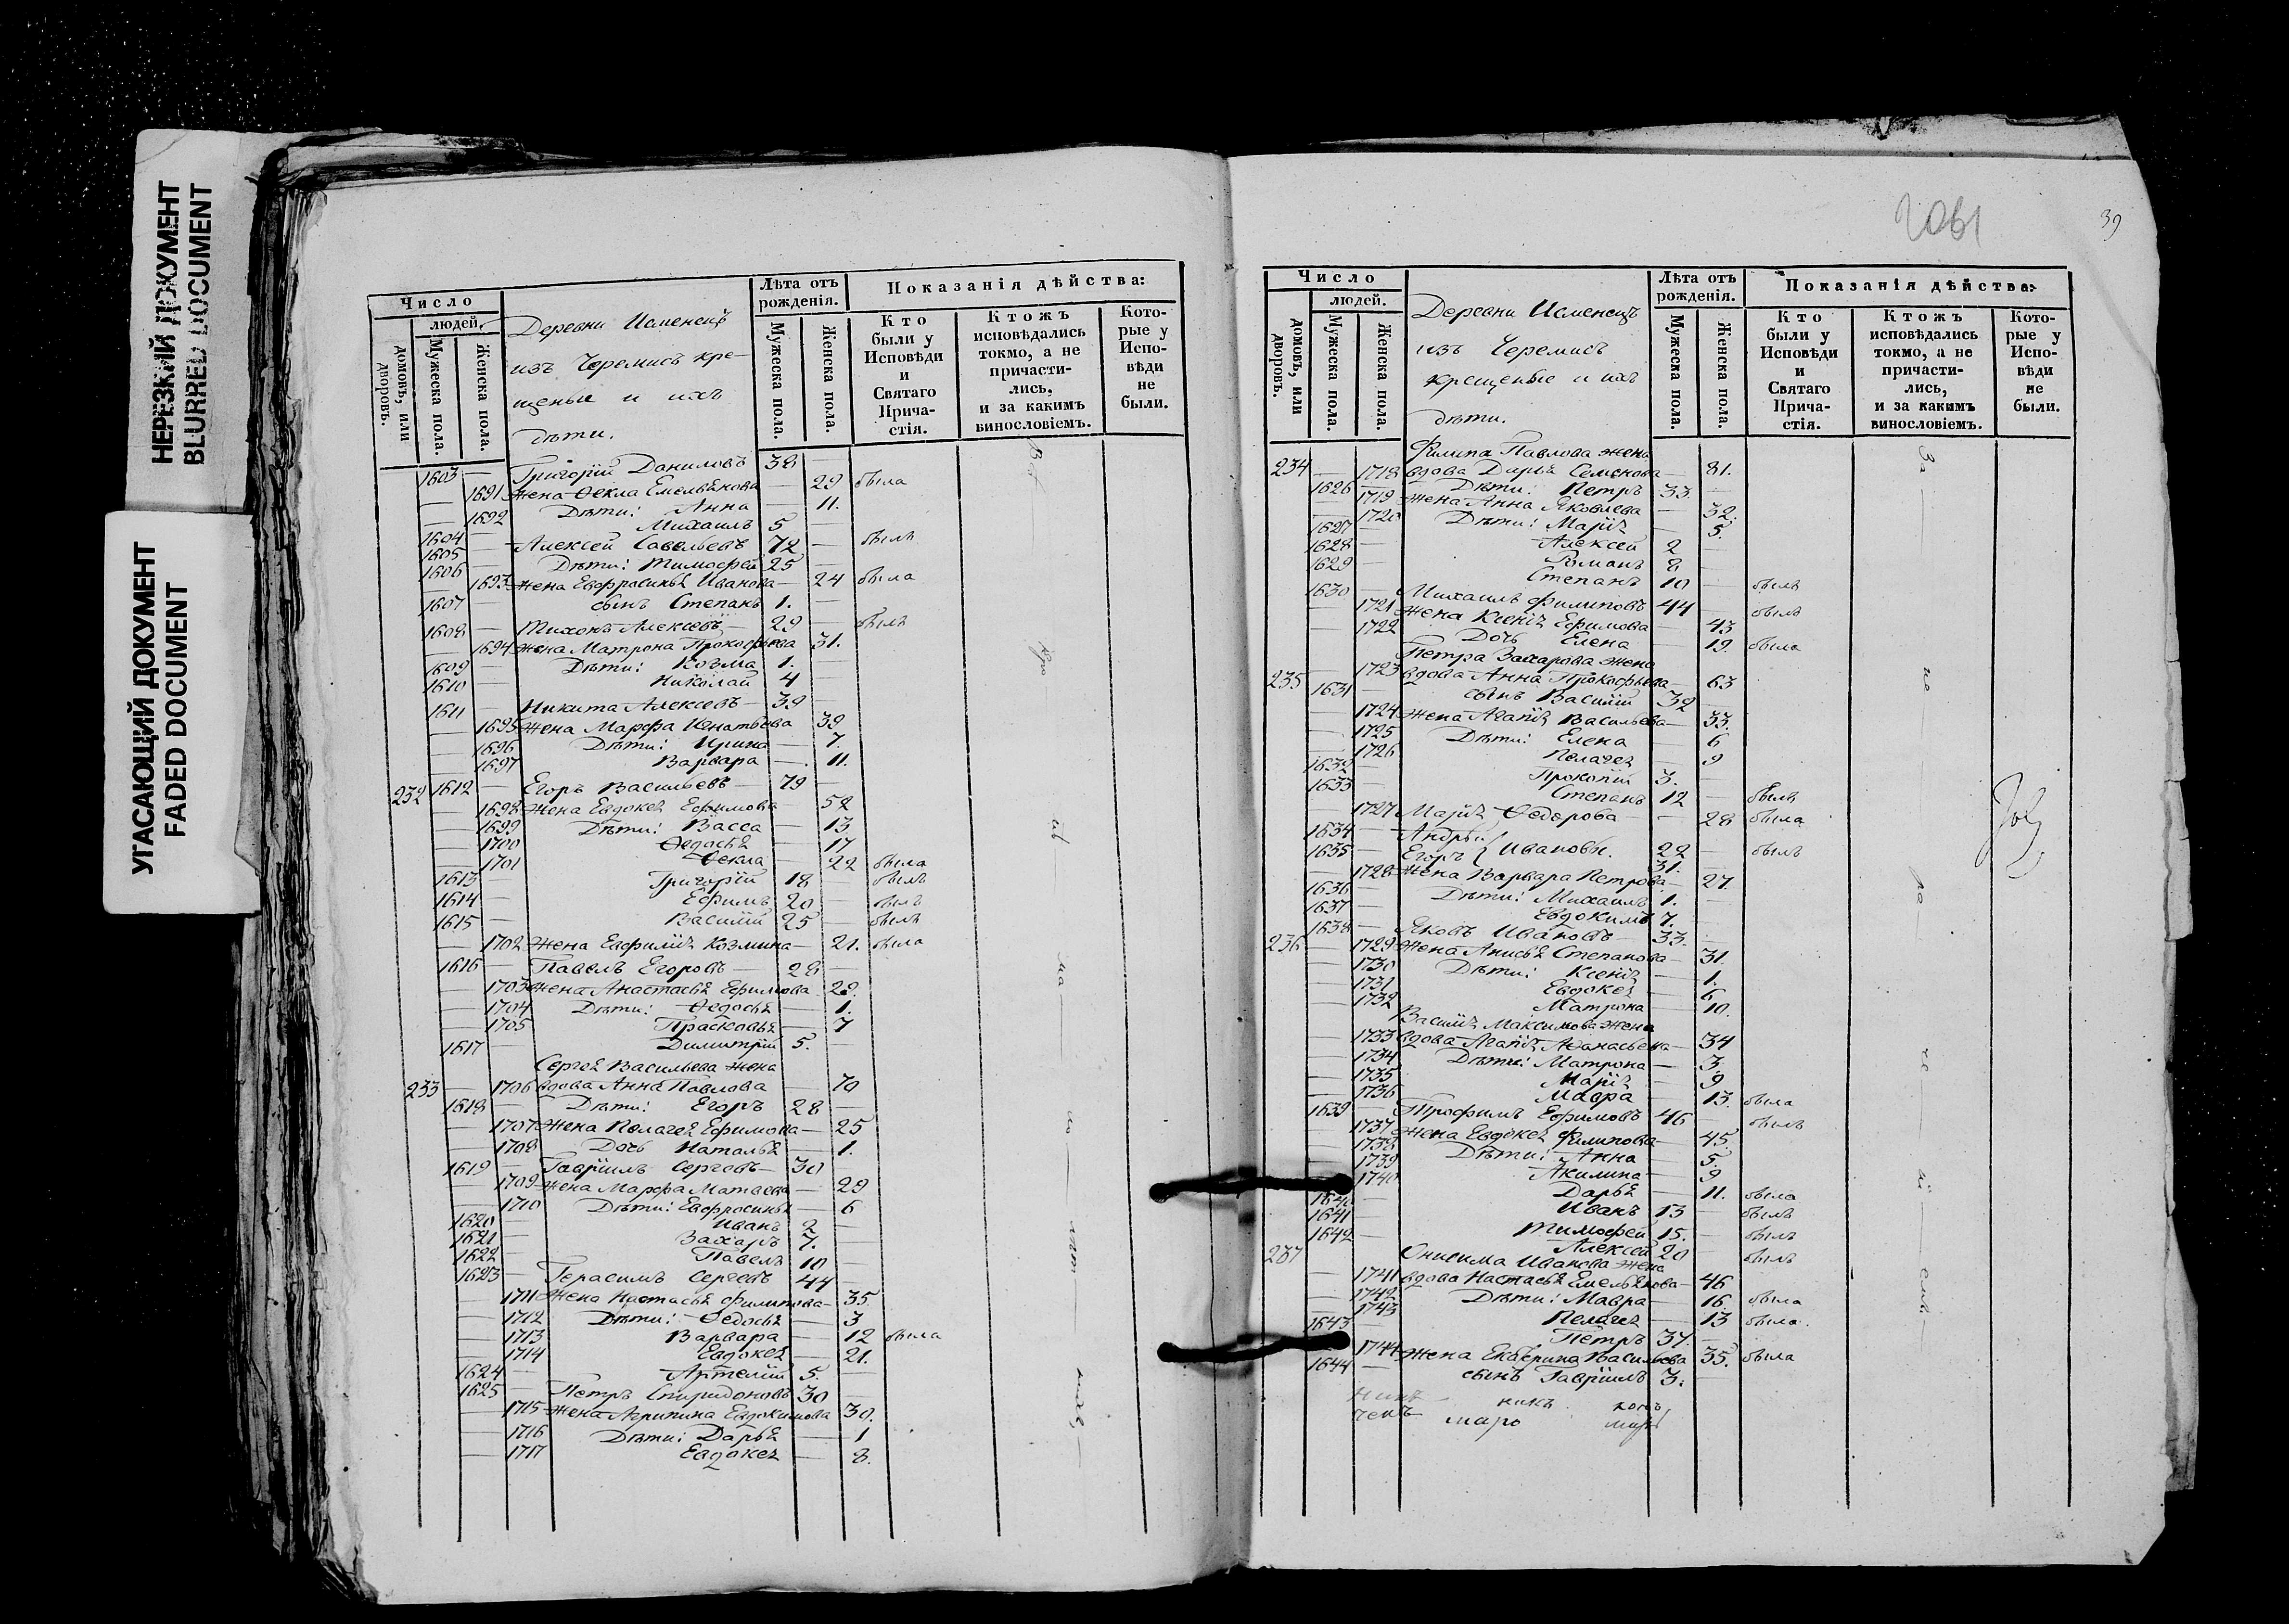 НЕРЕЗКИЙ ДОКУМЕНТ
BLURRED DOCUMENT
УГАСАЮЩИЙ ДОКУМЕНТ
FADED DOCUMENT
Число
людей.
домовъ, или дворовъ.
Мужеска пола.
Женска пола.
Деревни Исменецъ
изъ Черемисъ кре-
щеные и ихъ
дѣти.
Лѣта отъ рожденія.
Мужеска пола.
Женска пола.
Показанія дѣйства:
Кто были у Исповѣди и Святаго Прича-стія.
Ктожъ исповѣдались токмо, а не причасти-лись, и за какимъ винословіемъ.
Кото-рые у Испо-вѣди не были.
1603 — Григорій Даниловъ 38 —
— 1691 Жена Ѳекла Емельянова — 29 была
— 1692 Дѣти: Анна — 11.
1604 — Михаилъ 5 —
1605 — Алексей Савельевъ 72 — былъ
1606 — Дѣти: Тимофей 25 —
— 1693 Жена Евфросинья Иванова — 24 была
1607 — сынъ Степанъ 1. —
1608 — Тихонъ Алексеевъ 29 — былъ
— 1694 Жена Матрона Прокофьева 31.
1609 — Дѣти: Козма 1. —
1610 — Николай 4 —
1611 — Никита Алексеевъ 39 —
— 1695 Жена Марфа Игнатьева 39
— 1696 Дѣти: Ирина — 7.
— 1697 Варвара — 11.
232 1612 — Егоръ Васильевъ 79 —
— 1698 Жена Евдокея Ефимова — 52
— 1699 Дѣти: Васса — 13
— 1700 Ѳедосья — 17
— 1701 Ѳекла — 22 была
1613 — Григорій 18 — былъ
1614 — Ефимъ 20 — былъ
1615 — Василій 25 — былъ
— 1702 Жена Евфимія Козмина — 21. была
1616 — Павелъ Егоровъ — 28 —
— 1703 Жена Анастасья Ефимова 28.
— 1704 Дѣти: Ѳедосья — 1.
— 1705 Прасковья — 7
1617 — Димитрій 5. —
Сергея Васильева жена
233 — 1706 вдова Анна Павлова — 70
1618 — Дѣти: Егоръ 28 —
— 1707 Жена Пелагея Ефимова — 25
— 1708 Дочь Наталья — 1.
1619 — Гавріилъ Сергеевъ 30 —
— 1709 Жена Марфа Матвеева — 29
— 1710 Дѣти: Евфросинья — 6
1620 — Иванъ 2 —
1621 — Захаръ 7. —
1622 — Павелъ 10 —
1623 — Герасимъ Сергеевъ 44 —
— 1711 Жена Настасья Филипова — 35.
— 1712 Дѣти: Ѳедосья — 3
— 1713 Варвара — 12 была
— 1714 Евдокея — 21.
1624 — Артемій 5. —
1625 — Петръ Спиридоновъ 30 —
— 1715 Жена Агрипина Евдокимова 30.
— 1716 Дѣти: Дарья — 1
— 1717 Евдокея — 8.
39
Число
людей.
домовъ, или дворовъ.
Мужеска пола.
Женска пола.
Деревни Исменецъ
изъ Черемисъ
крещеные и ихъ
дѣти.
Лѣта отъ рожденія.
Мужеска пола.
Женска пола.
Показанія дѣйства:
Кто были у Исповѣди и Святаго Прича-стія.
Ктожъ исповѣдались токмо, а не причасти-лись, и за какимъ винословіемъ.
Кото-рые у Испо-вѣди не были.
Филипа Павлова жена
234 — 1718 вдова Дарья Семенова — 81.
1626 — Дѣти: Петръ 33. —
— 1719 Жена Анна Яковлева — 32.
— 1720 Дѣти: Марія — 5.
1627 — Алексей 2 —
1628 — Романъ 8 —
1629 — Степанъ 10 — былъ
1630 — Михаилъ Филиповъ 44 — былъ
— 1721 Жена Ксенія Ефимова — 43
— 1722 Дочь Елена — 19. была
Петра Захарова жена
235 — 1723 вдова Анна Прокофьева — 63
1631 — сынъ Василій 32 —
— 1724 Жена Агапія Васильева — 33.
— 1725 Дѣти: Елена — 6
— 1726 Пелагея — 9
1632 — Прокопій 3. —
1633 — Степанъ 12 — былъ
— 1727 Марія Ѳедорова — 28 была
1634 — Андрей
1635 — Егоръ } Ивановы. 22 — былъ
31. —
— 1728 Жена Варвара Петрова — 27.
1636 — Дѣти: Михаилъ 1. —
1637 — Евдокимъ 7. —
1638 — Яковъ Ивановъ 33. —
236 — 1729 Жена Анисья Степанова — 31.
— 1730 Дѣти: Ксенія — 1.
— 1731 Евдокея — 6
— 1732 Матрона — 10.
Василія Максимова жена
— 1733 вдова Агапія Аѳанасьева — 34
— 1734 Дѣти: Матрона — 3.
— 1735 Марія — 9
— 1736 Мавра — 13. была
1639 — Трофимъ Ефимовъ 46 — былъ
— 1737 Жена Евдокея Филипова — 45.
— 1738 Дѣти: Анна — 5.
— 1739 Акилина — 9
— 1740 Дарья — 11. была
1640 — Иванъ 13 — былъ
1641 — Тимофей 15. — былъ
1642 — Алексей 20 — былъ
237 Онисима Иванова жена
— 1741 вдова Настасья Емельянова — 46
— 1742 Дѣти: Мавра — 16 была
— 1743 Пелагея — 13 была
1643 — Петръ 37. —
— 1744 Жена Екатерина Васильева 35. была
1644 — сынъ Гавріилъ 3. —